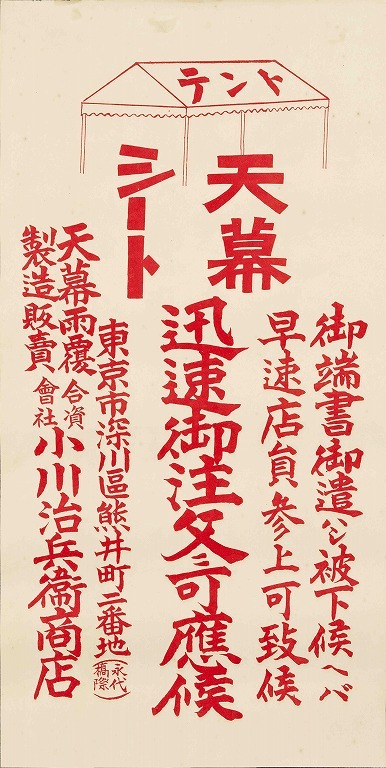 テント
天幕
シート
御端書御遣ハシ被下候ヘバ
早速店員参上可致候
迅速御注文ニ可應候
東京市深川區熊井町二番地(永代橋際)
天幕雨覆
製造販賣
合資會社小川治兵衞商店